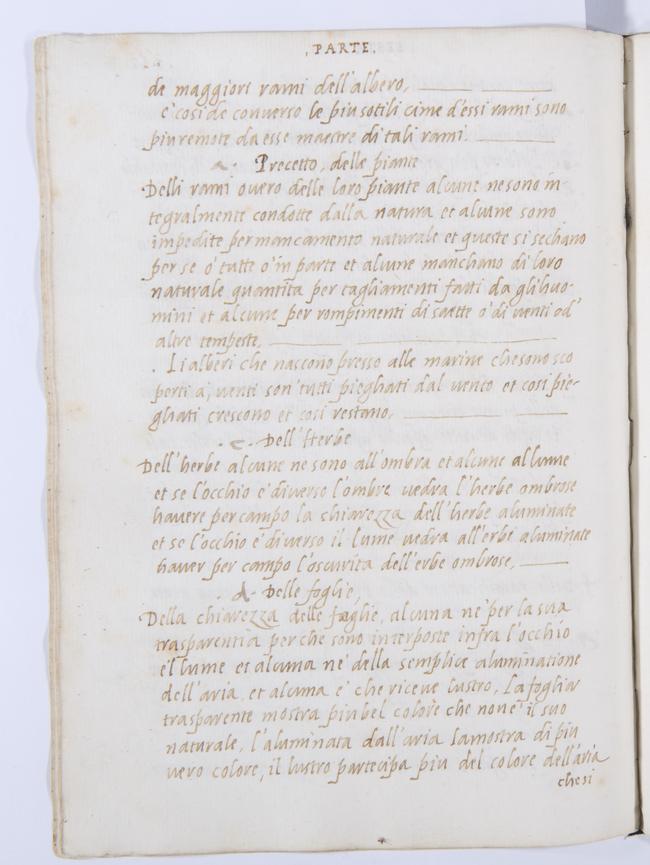 . PARTE .
de maggiori rami dell'albero,
e cosi de converso le piu sotili cime d'essi rami sono
piu remote da esse maestre di tali rami.
a. Precetto, delle piante
Delli rami overo delle loro piante alcune ne sono in
tegralmente condotte dalla natura et alcune sono
impedite per mancamento naturale et queste si sechano
per se o' tutte o' in parte et alcune manchano di loro
naturale quantita per tagliamenti fatti da gli huo-
mini et alcune per rompimenti di saette o' di venti od'
altre tempeste,
. Li alberi che nascono presso alle marine che sono sco
perti a, venti son' tutti pieghati dal vento et cosi pie-
ghati crescono et cosi restano,
. c. Dell'Herbe
Dell'herbe alcune ne sono all'ombra et alcune al lume
et se l'occhio e' diverso l'ombre vedra l'herbe ombrose
havere per campo la chiarezza dell'herbe aluminate
et se l'occhio e' diverso il lume vedra all'erbe aluminate
haver per campo l'oscurita dell'erbe ombrose,
. d. Delle foglie,
Della chiarezza delle foglie, alcuna ne' per la sua
trasparentia perche sono interposte infra l'occhio
e'l lume et alcuna ne' della semplice aluminatione
dell'aria, et alcuna e' che riceve lustro, La foglia
trasparente mostra piu bel colore che non e' il suo
naturale, l'aluminata dall'aria la mostra di piu
vero colore, il lustro partecipa piu del colore dell'aria
che si